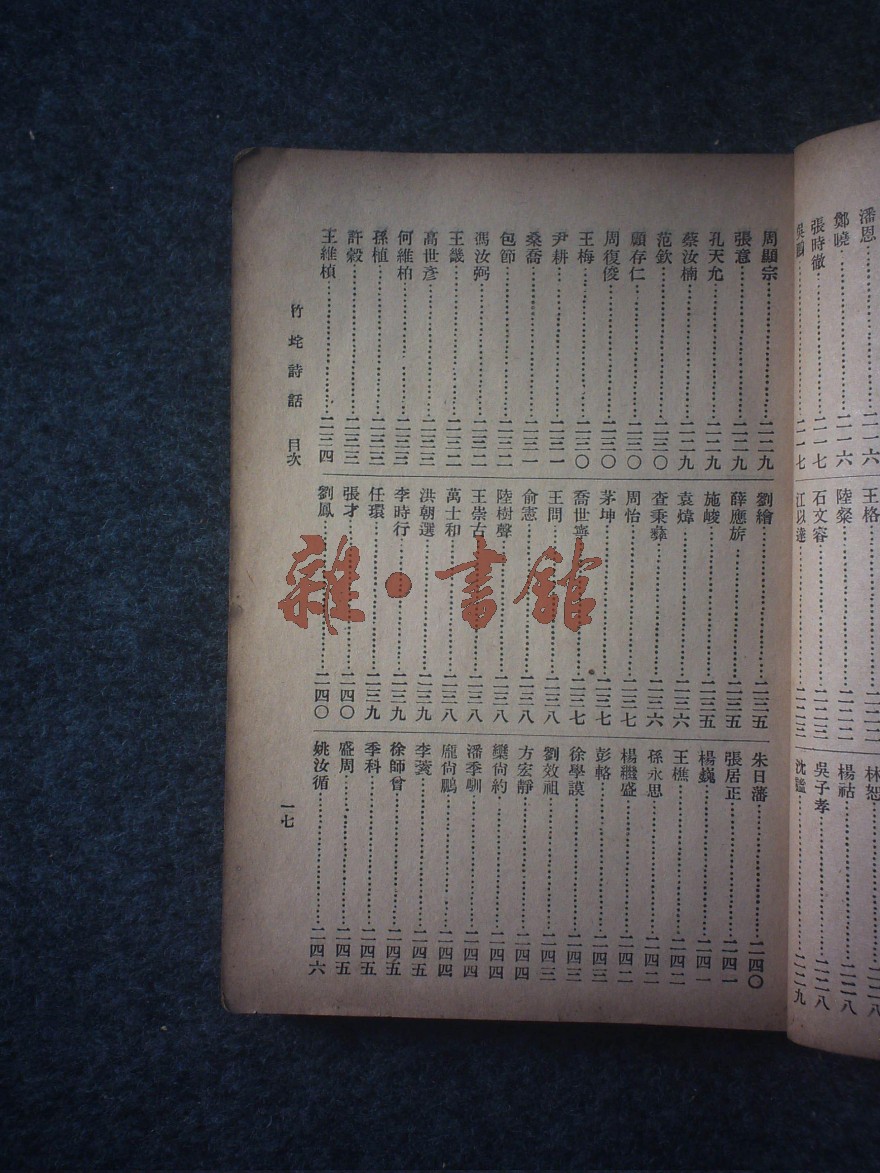 潘恩……二一六
鄭曉……二一六
張時徹……二一七
二一七
王格……二二二
陸粲……二二二
石文容……二二三
江以達……二二三
林恕……二二八
楊祜……二二八
吳子孝……二二八
二二九
周顯宗……二二九
張意……二二九
孔天允……二二九
蔡汝楠……二二九
范欽……二三〇
顧存仁……二三〇
周復俊……二三〇
王梅……二三〇
尹耕……二三一
桑喬……二三一
包節……二三二
馮汝弼……二三二
王畿……二三二
高世彥……二三三
何維柏……二三三
孫植……二三三
許穀……二三三
王維楨……二三四
劉繪……二三五
薛應旂……二三五
施峻……二三五
袁煒……二三六
查秉彝……二三六
周怡……二三七
茅坤……二三七
喬世寧……二三七
王問……二三八
俞憲……二三八
陸樹聲……二三八
王崇古……二三八
萬士和……二三八
洪朝選……二三九
李時行……二三九
任環……二三九
張才……二四〇
劉鳳……二四〇
朱日藩……二四〇
張居正……二四一
楊巍……二四一
王樵……二四二
孫永思……二四二
楊繼盛……二四二
彭輅……二四三
徐學謨……二四三
劉效祖……二四三
方宏靜……二四四
欒尚約……二四四
潘季馴……二四四
龐尚鵬……二四四
李蓘……二四五
徐師曾……二四五
季科……二四五
盛周……二四五
姚汝循……二四六
竹垞詩話 目次
一七
雜·書館